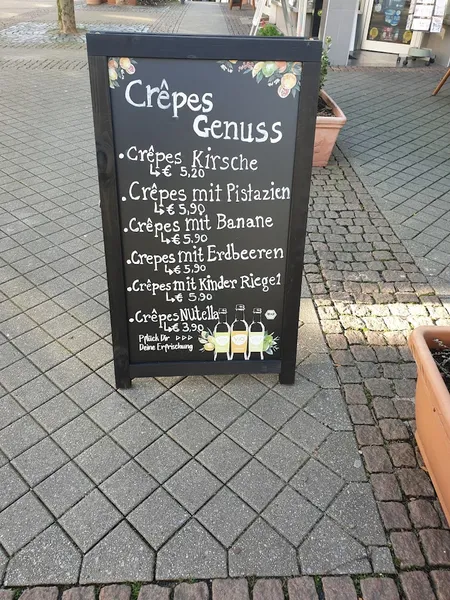 Crêpes
Genuss
•Crêpes Kirsche
↳€ 5,20
•Crêpes mit Pistazien
↳€ 5,90
•Crêpes mit Banane
↳€ 5,90
•Crepes mit Erdbeeren
↳€ 5,90
•Crêpes mit Kinder Riegel
↳€ 5,90
•Crêpes Nutella
↳€ 3,90
Pflück Dir ▷▷▷
Deine Erfrischung